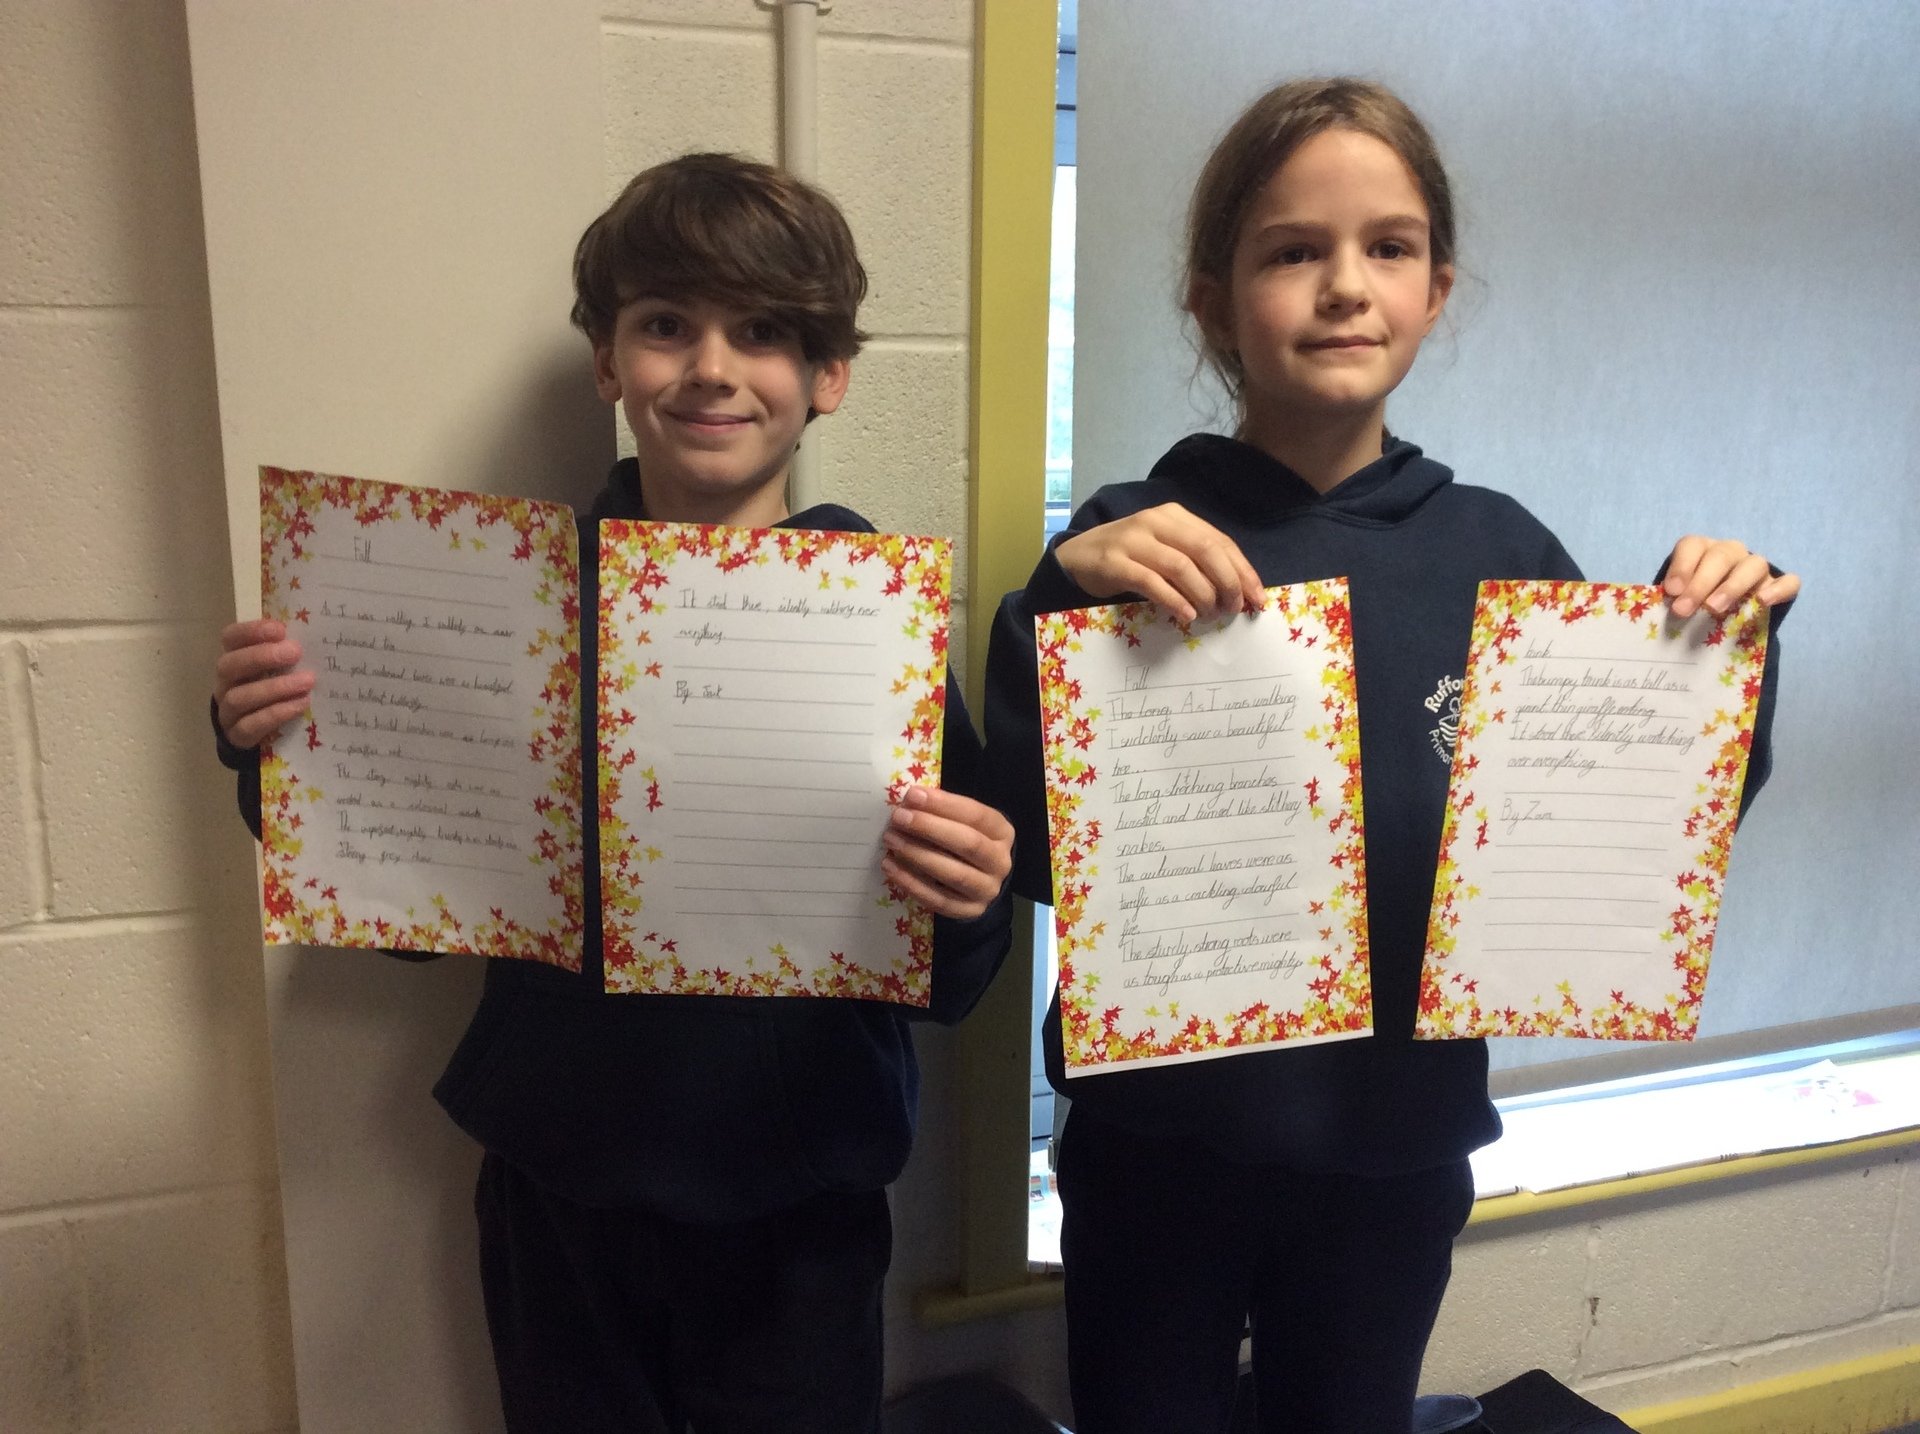 Fall
As I was walking, I suddenly saw
a phenomenal tree
The great autumnal leaves were as beautiful
as a brilliant butterfly
The long branches were as
a
The strong mighty roots were as
as a
The
strong grey
It stood there, silently watching over
everything.
By Jack
Fall
The long As I was walking
I suddenly saw a beautiful
tree...
The long stretching branches
twisted and turned like slithery
snakes.
The autumnal leaves were as
terrific as a crackling colourful
fire
The sturdy, strong roots were
as tough as a protective mighty
trunk.
The bumpy trunk is as tall as a
giant thin giraffe eating
It stood there, silently watching
over everything...
By Zara
Ruffo
Prima